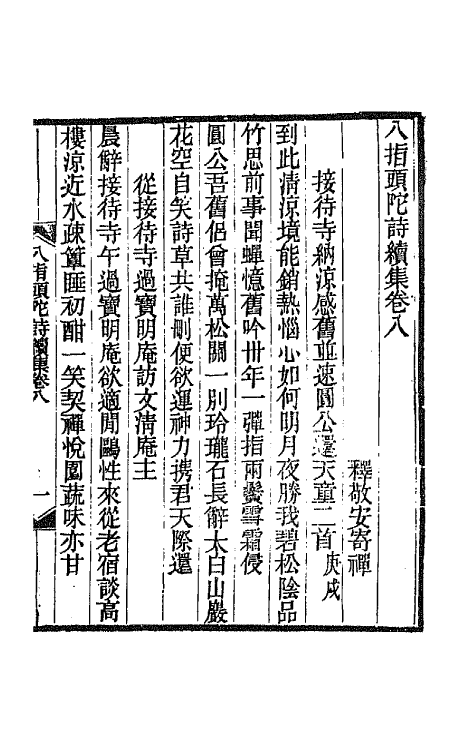 八指頭陀詩續集卷八
釋敬安寄禪
接待寺納涼感舊並速圓公還天童二首庚戌
到此清涼境能銷熱惱心如何明月夜勝我碧松陰品
竹思前事聞蟬憶舊吟卅年一彈指兩鬢雪霜侵
圓公吾舊侶曾掩萬松關一別玲瓏石長辭太白山巖
花空自笑詩草共誰刪便欲運神力携君天際還
從接待寺過寶明庵訪文淸庵主
晨辭接待寺午過寶明庵欲適閒鷗性來從老宿談高
樓涼近水疎簟睡初酣一笑契禪悅園蔬味亦甘
八指頭陀詩續集卷八
一